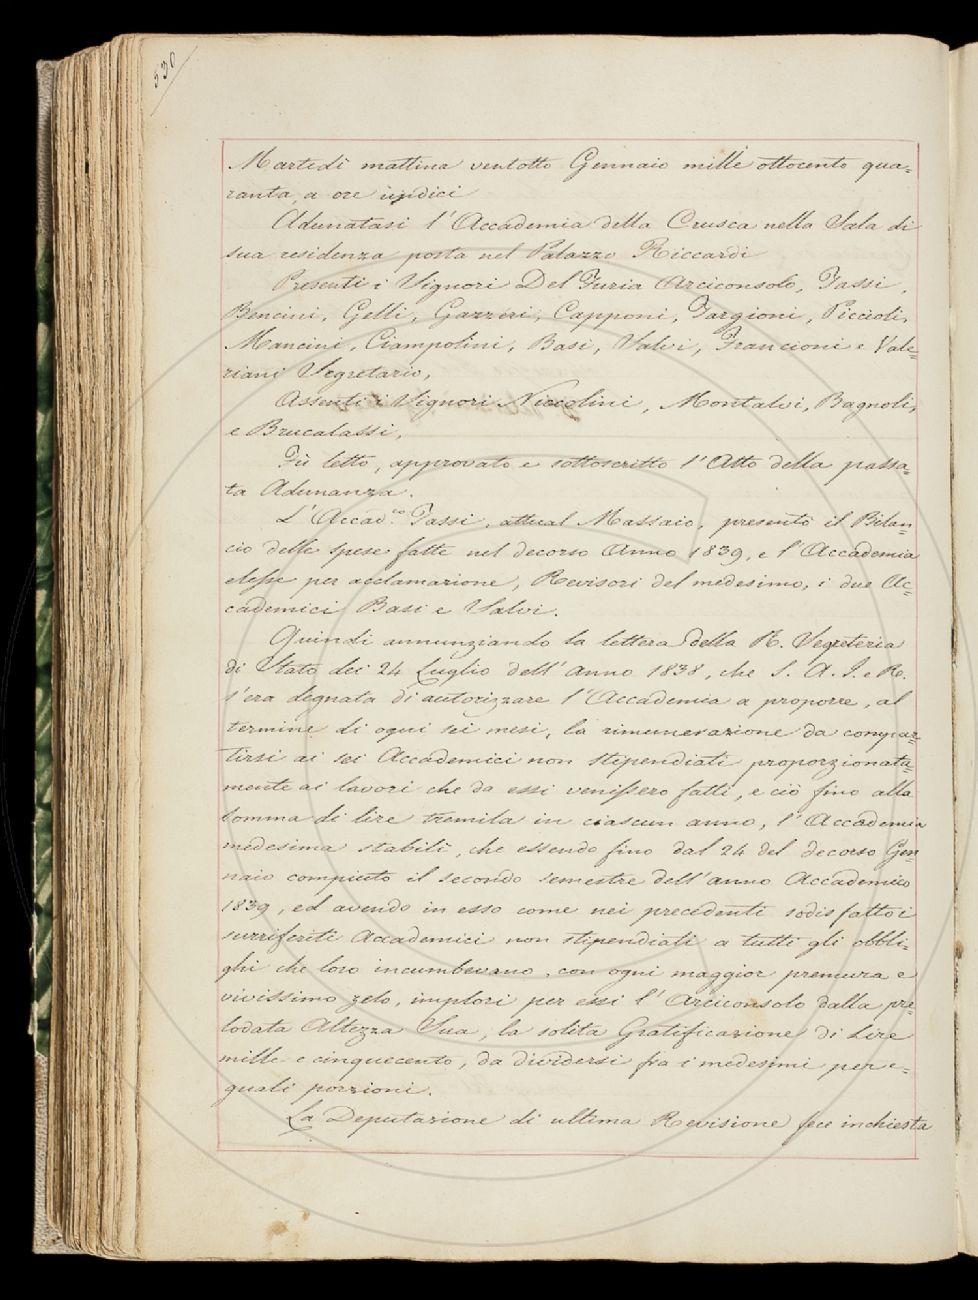 530
Martedì mattina ventotto Gennaio mille ottocento qua=
ranta, a ore undici
Adunatasi l'Accademia della Crusca nella Sala di
sua residenza posta nel Palazzo Riccardi
Presenti i Signori Del Furia Arciconsolo, Tassi,
Bencini, Gelli, Gazzeri, Capponi, Targioni, Piccioli,
Mancini, Ciampolini, Basi, Salvi, Francioni e Vale=
riani Segretario,
Assenti i Signori Niccolini, Montalvi, Bagnoli,
e Brucalassi,
Fù letto, approvato e sottoscritto l'Atto della passa=
ta Adunanza.
L'Accad.co Tassi, attual Massaio, presentò il Bilan=
cio delle spese fatte nel decorso Anno 1839, e l'Accademia
elesse per acclamazione, Revisori del medesimo, i due Ac=
cademici Basi e Salvi.
Quindi annunziando la lettera della R. Segreteria
di Stato dei 24 Luglio dell'anno 1838, che S. A. I. e R.
s'era degnata di autorizzare l'Accademia a proporre, al
termine di ogni sei mesi, la rimunerazione da compar=
tirsi ai sei Accademici non stipendiati proporzionata=
mente ai lavori che da essi venissero fatti, e ciò fino alla
somma di lire tremila in ciascun anno, l'Accademia
medesima stabilì, che essendo fino dal 24 del decorso Gen=
naio compiuto il secondo semestre dell'anno Accademico
1839, ed avendo in esso come nei precedenti sodisfatto i
surriferiti Accademici non stipendiati a tutti gli obbli=
ghi che loro incumbevano, con ogni maggior premura e
vivissimo zelo, implori per essi l'Arciconsolo dalla pre=
lodata Altezza Sua, la solita Gratificazione di Lire
mille e cinquecento, da dividersi fra i medesimi per e=
guali porzioni.
La Deputazione di ultima Revisione fece inchiesta